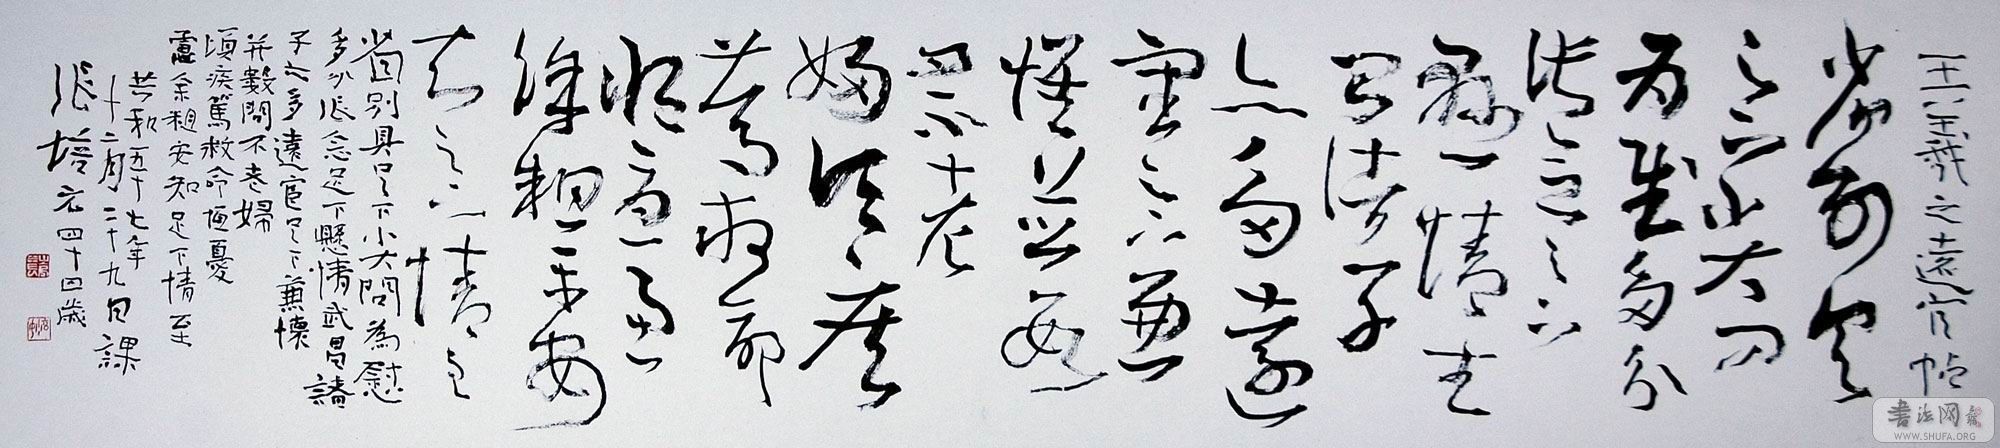 王羲之遠宦帖
省别具
足下小大問
為慰多分
張念足下
懸情武
昌諸子
亦多遠
宦足下兼
懷並數
問不老
婦頃疾
篤救命
恒憂慮
余粗平安
知足下情至
省别具足下小大問為慰
多分張念足下懸情武昌諸
子亦多遠宦足下兼懷
并數問不老婦
頃疾篤救命恒憂
慮余粗安知足下情至
共和五十七年
十二月二十九日課
張培元四十四歲
書法网
WWW.SHUFA.ORG